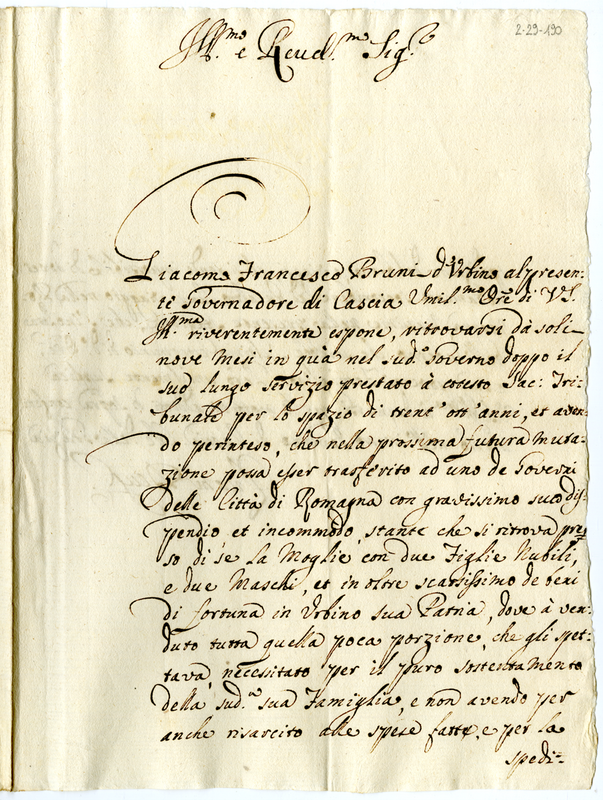 2-29-190
Ill.mo e Reud.mo Sig.r
Giacomo Francesco Bruni d'Urbino al presen:
te Governadore di Cascia Umil.mo Ore di V.S.
Ill.ma riverentemente espone, ritrovarsi dà soli
nove Mesi in quà nel sud.o Governo doppo il
suo lungo servizio prestato à cotesto Sac: Tri:
bunale per lo spazio di trent'ott'anni, et aven:
do perinteso, che nella prossima futura muta:
zione possa esser trasferito ad uno de Governi
delle Città di Romagna con gravissimo suo dis:
pendio et incommodo, stante che si ritrova pres:
so di se la Moglie con due Figlie Nubili,
e due Maschi, et in oltre scarsissimo de beni
di fortuna in Urbino sua Patria, dove à ven:
duto tutta quella poca porzione, che gli spet:
tava, necessitato per il puro sostentamento
della sud.a sua Famiglia, e non avendo per
anche risarcito alle spese fatte, e per la
spedi=